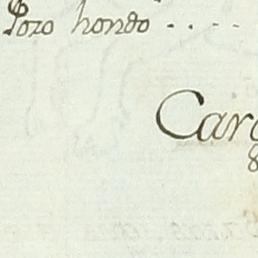 Pozo hondo ....
Car